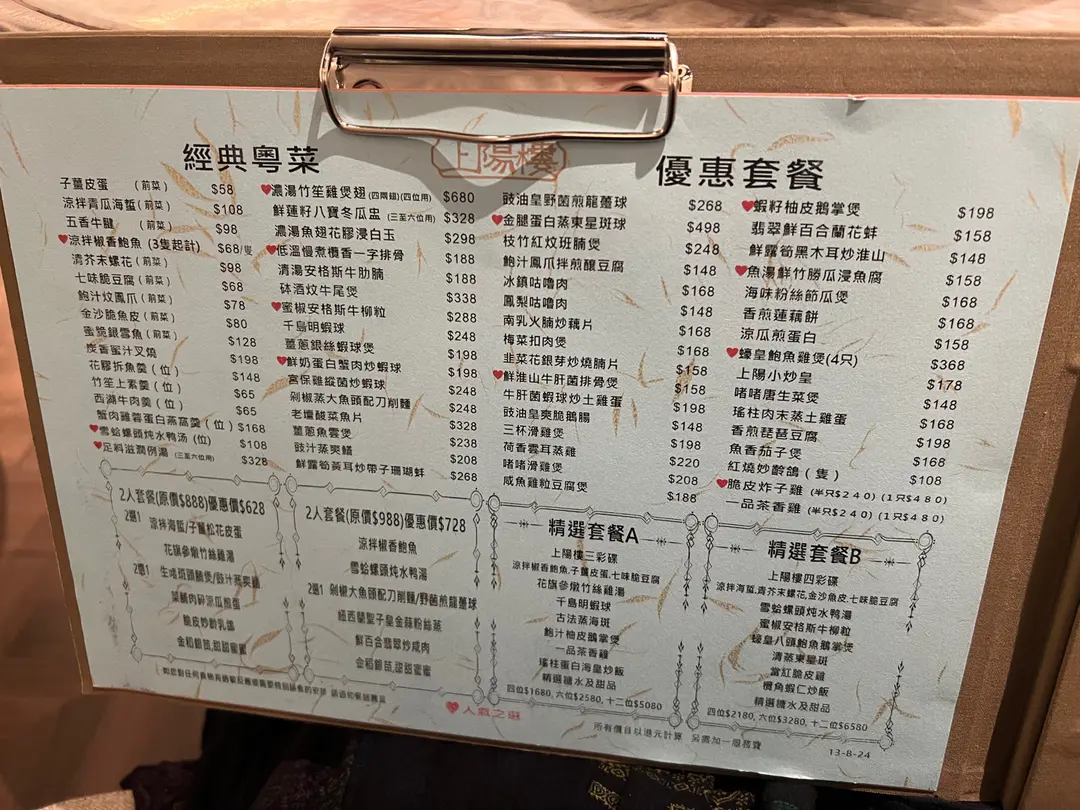 上陽樓
經典粵菜
優惠套餐
子薑皮蛋 (前菜) $58
涼拌青瓜海蜇(前菜) $108
五香牛腱 (前菜) $98
涼拌椒香鮑魚 (3隻起計) $68/隻
青芥末螺花(前菜) $98
七味脆豆腐(前菜) $68
鮑汁炆鳳爪(前菜) $78
金沙脆魚皮(前菜) $80
蜜脆銀雪魚(前菜) $128
炭香蜜汁叉燒 $198
花膠拆魚羹(位) $148
竹笙上素羹(位) $65
西湖牛肉羹(位) $65
蟹肉雞蓉蛋白燕窩羹(位) $168
雪蛤螺頭炖水鸭汤(位) $108
足料滋潤例湯 (三至六位用) $328
濃湯竹笙雞煲翅(四兩翅)(四位用) $680
鮮蓮籽八寶冬瓜盅 (三至六位用) $328
濃湯魚翅花膠浸白玉 $298
低溫慢煮欖香一字排骨 $188
清湯安格斯牛肋腩 $188
砵酒炆牛尾煲 $338
蜜椒安格斯牛柳粒 $288
千島明蝦球 $248
薑蔥銀絲蝦球煲 $198
鮮奶蛋白蟹肉炒蝦球 $198
宮保雞縱菌炒蝦球 $248
剁椒蒸大魚頭配刀削麵 $248
老壇酸菜魚片 $328
薑蔥魚雲煲 $238
豉汁蒸爽鱔 $208
鮮露筍黃耳炒帶子珊瑚蚌 $268
豉油皇野菌煎龍躉球 $268
金腿蛋白蒸東星斑球 $498
枝竹紅炆班腩煲 $248
鮑汁鳳爪拌煎釀豆腐 $148
冰鎮咕嚕肉 $168
鳳梨咕嚕肉 $148
南乳火腩炒藕片 $168
梅菜扣肉煲 $168
韭菜花銀芽炒燒腩片 $158
鮮淮山牛肝菌排骨煲 $158
牛肝菌蝦球炒土雞蛋 $198
豉油皇爽脆鵝腸 $148
三杯滑雞煲 $198
荷香雲耳蒸雞 $220
啫啫滑雞煲 $208
咸魚雞粒豆腐煲 $188
蝦籽柚皮鵝掌煲 $198
翡翠鮮百合蘭花蚌 $158
鮮露筍黑木耳炒淮山 $148
魚湯鮮竹勝瓜浸魚腐 $158
海味粉絲節瓜煲 $168
香煎蓮藕餅 $168
涼瓜煎蛋白 $158
蠔皇鮑魚雞煲(4只) $368
上陽小炒皇 $178
啫啫唐生菜煲 $148
瑤柱肉末蒸土雞蛋 $168
香煎琵琶豆腐 $198
魚香茄子煲 $168
紅燒妙齡鴿(隻) $108
脆皮炸子雞 (半只$240)(1只$480)
一品茶香雞 (半只$240)(1只$480)
2人套餐(原價$888)優惠價$628
2選1 涼拌海蜇/子薑松花皮蛋
花旗參燉竹絲雞湯
2選1
金稻銀筑,甜甜蜜蜜
2人套餐(原價$988)優惠價$728
涼拌椒香鮑魚
雪蛤螺頭炖水鸭湯
2選1 剁椒大魚頭配刀削麵/野菌煎龍躉球
紐西蘭聖子皇金蒜粉絲蒸
鮮百合翡翠炒咸肉
金稻銀筑,甜甜蜜蜜
精選套餐A
上陽樓三彩碟
涼拌椒香鮑魚,子薑皮蛋,七味脆豆腐
花旗參燉竹絲雞湯
千島明蝦球
古法蒸海斑
鮑汁柚皮鵝掌煲
一品茶香雞
瑤柱蛋白海皇炒飯
精選糖水及甜品
四位$1680, 六位$2580, 十二位$5080
精選套餐B
上陽樓四彩碟
涼拌海蜇,青芥末螺花,金沙魚皮,七味脆豆腐
雪蛤螺頭炖水鸭湯
蜜椒安格斯牛柳粒
蠔皇八頭鮑魚鵝掌煲
清蒸東星斑
當紅脆皮雞
欖角蝦仁炒飯
精選糖水及甜品
四位$2180, 六位$3280, 十二位$6580
人氣之選
所有價目以港元計算 另需加一服務費
13-8-24